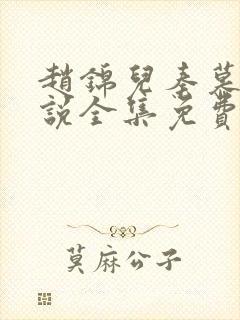 趙錦兒秦慕
說全集免費
莫麻公子